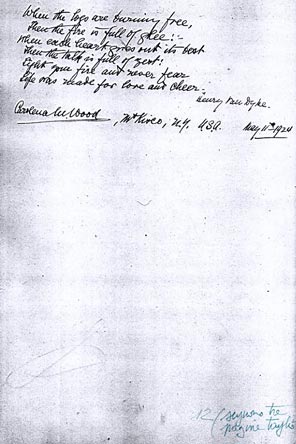 When the logs are burning free,
Then the fire is full of glee:-
When each heart gives out its best
Then the talk is full of zest:
Light your fire and never fear
Life was made for love and cheer.
Henry Van Dyke.
Carolena M Wood, Mt Kisco, N.Y. U.S.A. May 11th 1924
12/ seguono tre
pagine